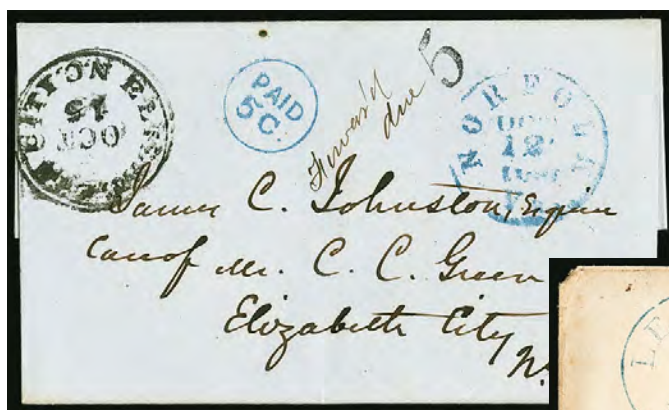 CITY N.C.
OCT
15
PAID
5C.
Forwar'd
due
5
NORFOLK
OCT
12
James C. Johnston, Esquire
Care of Mr. C. C. Green
Elizabeth City
N.
LE